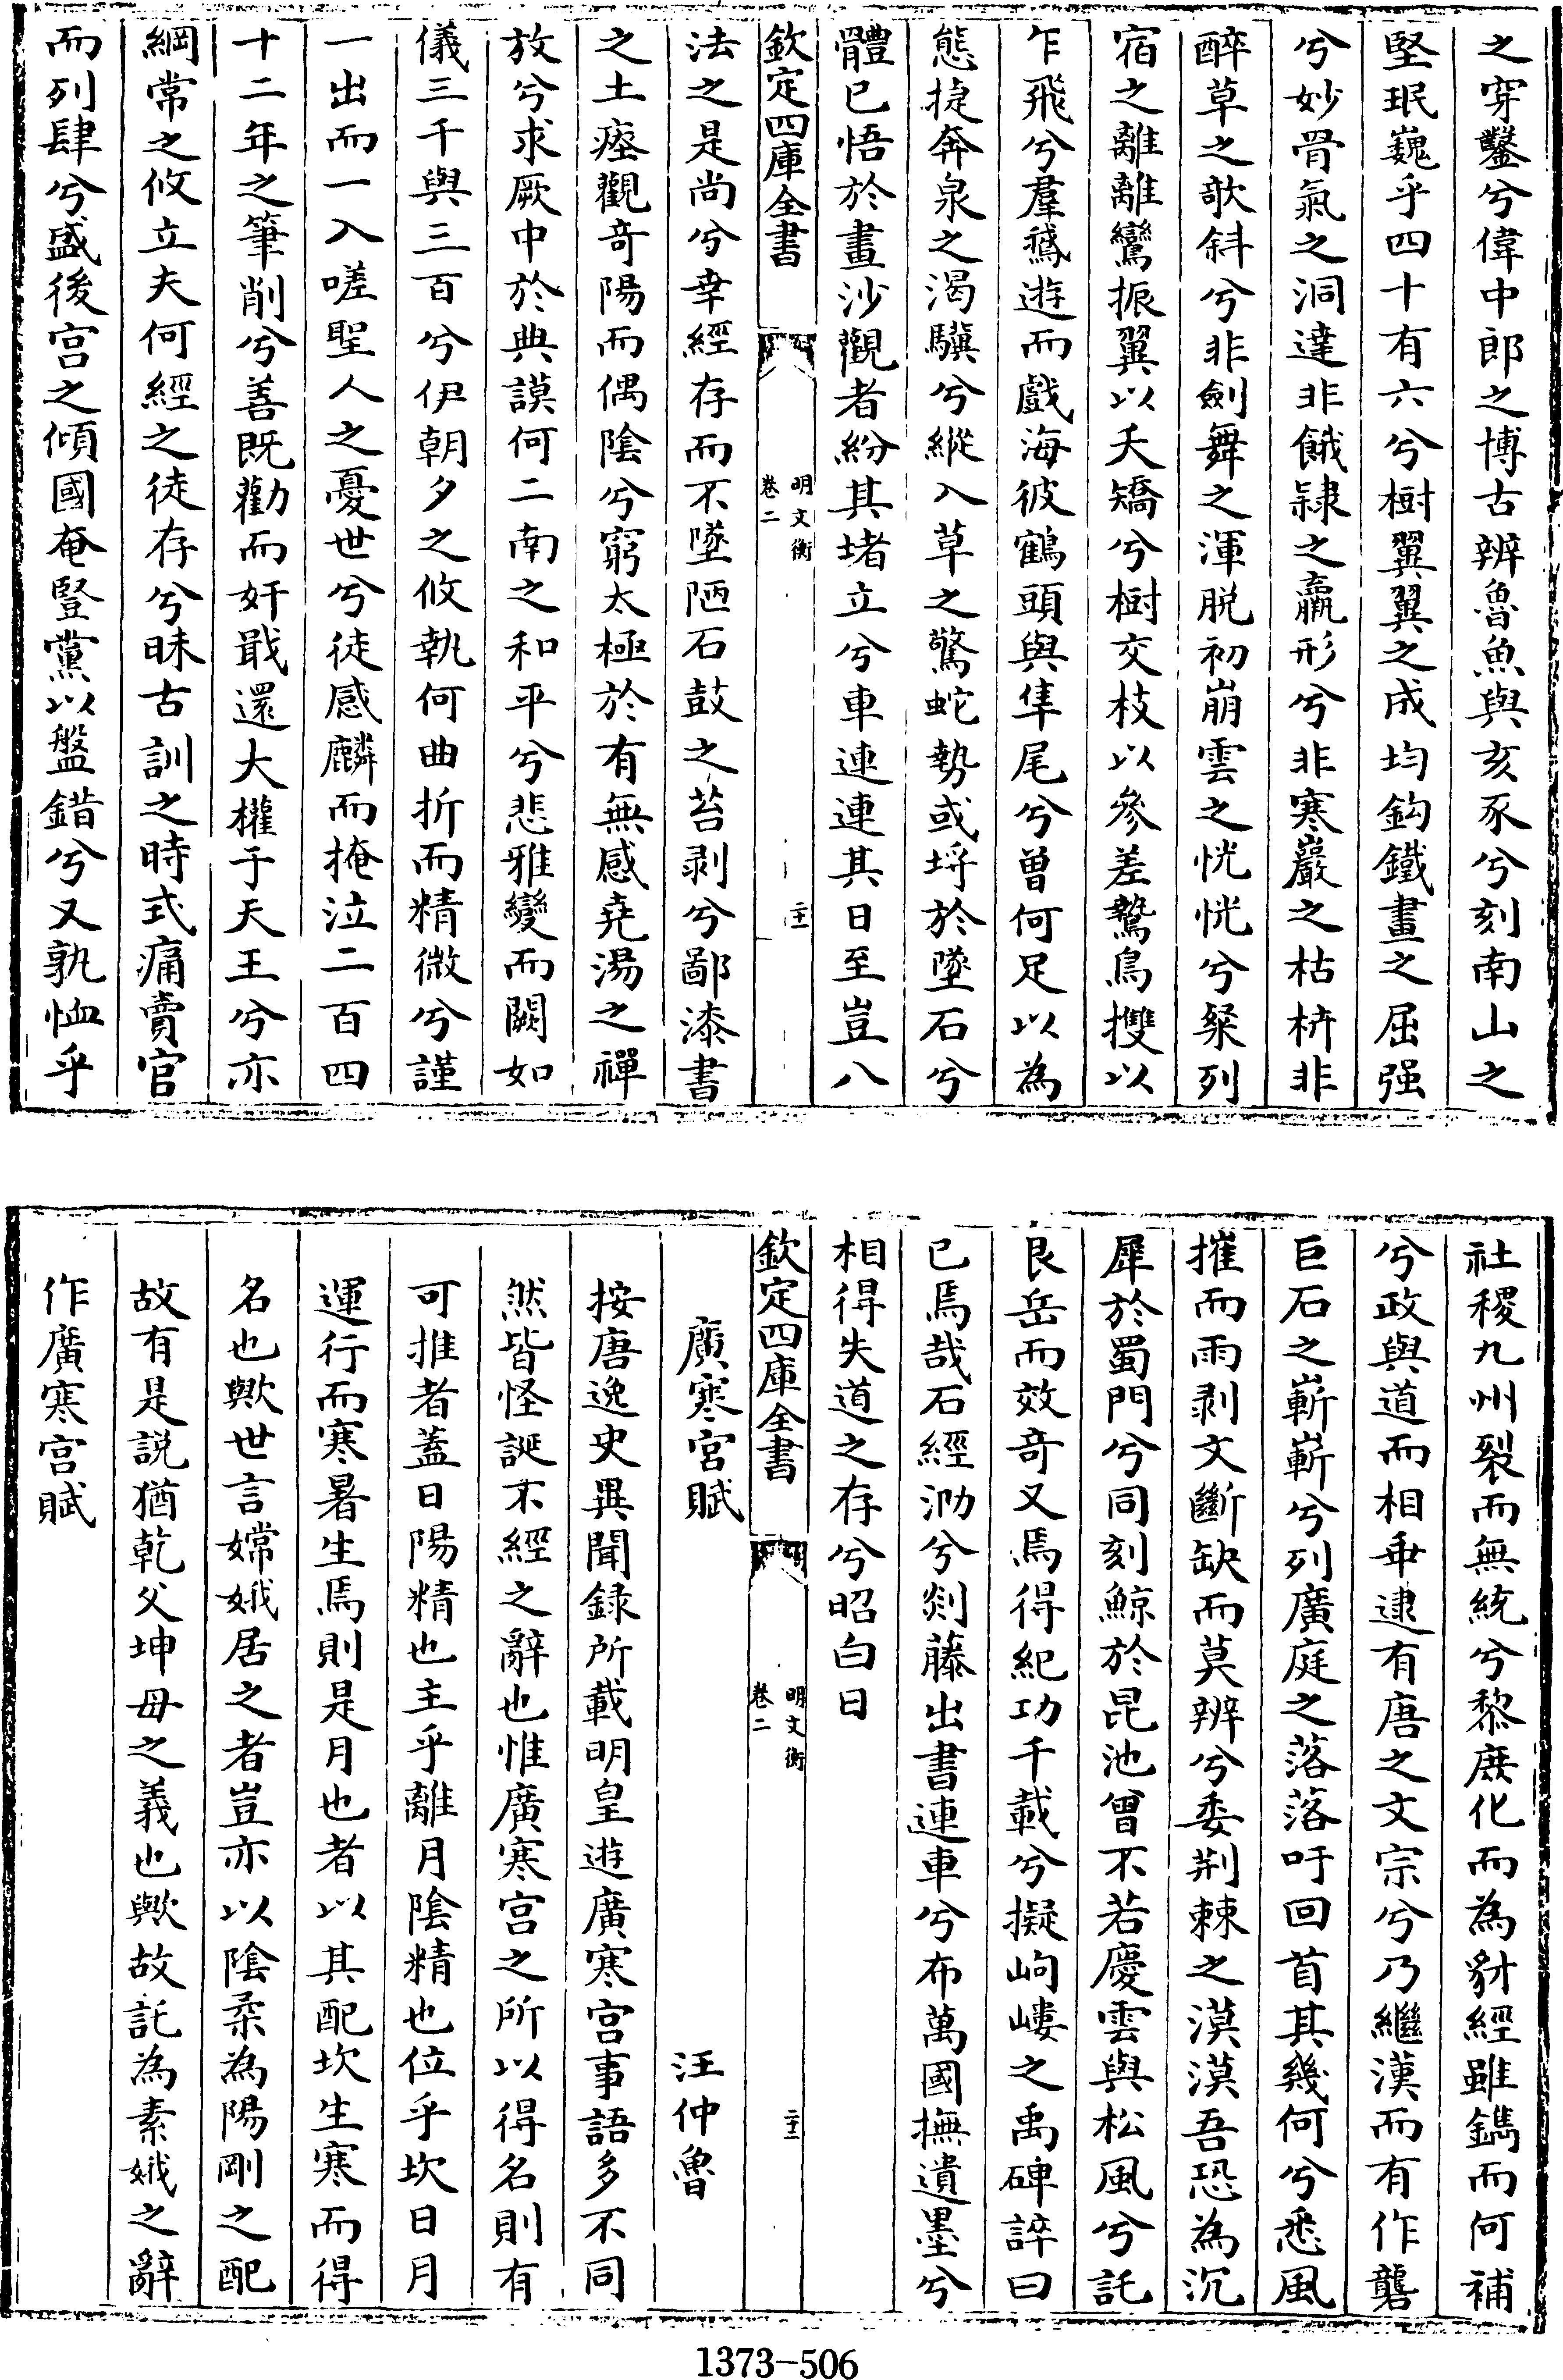 之穿鑿兮偉中郎之博古辨魯魚與亥豕兮刻南山之
堅珉巍乎四十有六兮樹翼翼之成均鈎鐵畫之屈强
兮妙骨氣之洞達非餓隷之羸形兮非寒巖之枯枿非
醉草之歌斜兮非劍舞之渾脱初崩雲之恍恍兮粲列
宿之離離鸞振翼以夭矯兮樹交枝以參差鷙鳥攫以
乍飛兮羣鵞遊而戲海彼鶴頭與隼尾兮曾何足以為
態捷奔泉之渴驥兮縱入草之驚蛇勢或埓於墜石兮
體已悟於畫沙觀者紛其堵立兮車連連其日至豈八
欽定四庫全書
明文衡
卷二
二十一
法之是尚兮幸經存而不墜陋石鼓之苔剥兮鄙漆書
之土瘞觀奇陽而偶陰兮窮太極於有無感堯湯之禪
放兮求厥中於典謨何二南之和平兮悲雅變而闕如
儀三千與三百兮伊朝夕之攸執何曲折而精微兮謹
一出而一入嗟聖人之憂世兮徒感麟而掩泣二百四
十二年之筆削兮善既勸而奸戢還大權于天王兮亦
綱常之攸立夫何經之徒存兮昧古訓之時式痛賣官
而列肆兮盛後宫之傾國奄豎黨以盤錯兮又孰恤乎
社稷九州裂而無統兮黎庶化而為豺經雖鐫而何補
兮政與道而相乖逮有唐之文宗兮乃繼漢而有作礱
巨石之嶄嶄兮列廣庭之落落吁回首其幾何兮悉風
摧而雨剥文斷缺而莫辨兮委荆棘之漠漠吾恐為沉
犀於蜀門兮同刻鯨於昆池曾不若慶雲與松風兮託
艮岳而效奇又焉得紀功千載兮擬岣嶁之禹碑誶曰
已焉哉石經泐兮剡藤出書連車兮布萬國撫遺墨兮
相得失道之存兮昭白日
欽定四庫全書
明文衡
卷二
二十二
廣寒宫賦 汪仲魯
按唐逸史異聞録所載明皇遊廣寒宫事語多不同
然皆怪誕不經之辭也惟廣寒宫之所以得名則有
可推者蓋日陽精也主乎離月陰精也位乎坎日月
運行而寒暑生焉則是月也者以其配坎生寒而得
名也歟世言嫦娥居之者豈亦以陰柔為陽剛之配
故有是説猶乾父坤母之義也歟故託為素娥之辭
作廣寒宫賦
1373-506